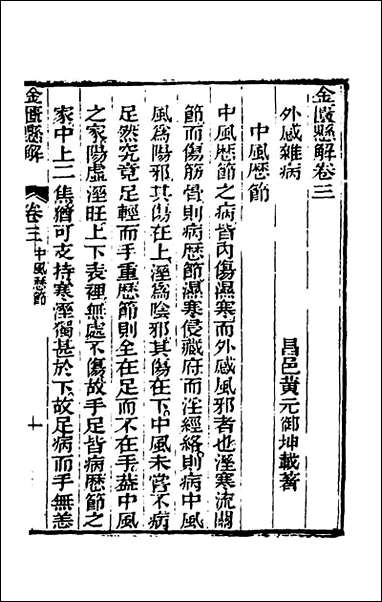 金匱懸解卷三
昌邑黃元御坤載著
外感雜病
中風歷節
中風歷節之病皆內傷濕寒而外感風邪者也溼寒流關
節而傷筋骨則病歷節濕寒侵藏府而淫經絡則病中風
風爲陽邪其傷在上溼爲陰邪其傷在下中風未嘗不病
足然究竟足輕而手重歷節則全在足而不在手蓋中風
之家陽虛溼旺上下表裡無處不傷故手足皆病歷節之
家中上二焦猶可支持寒溼獨甚於下故足病而手無恙
金匱懸解
卷三 中風歷節
十